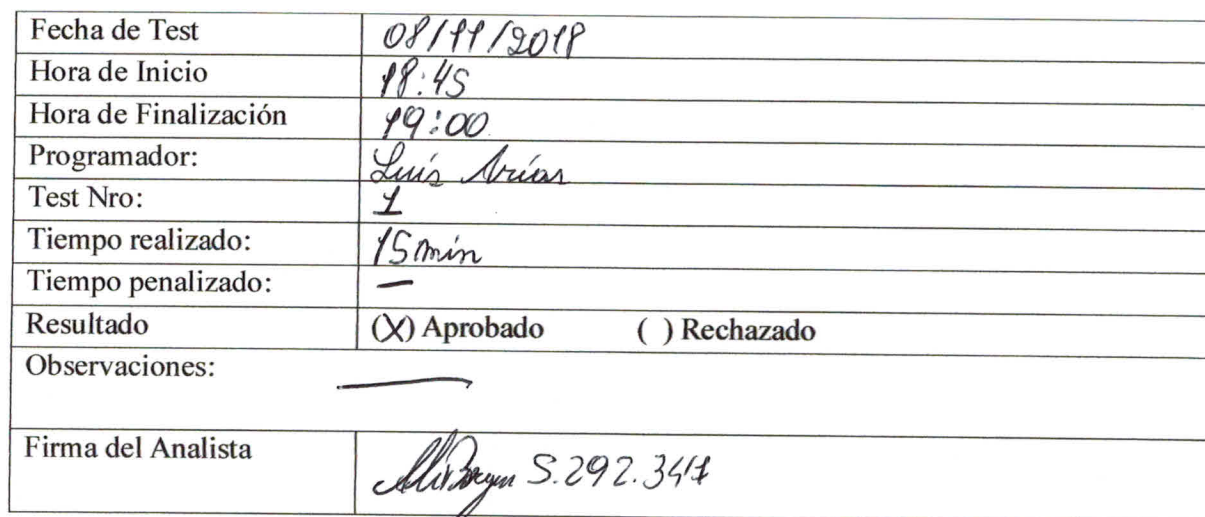 Fecha de Test 08/11/2018
Hora de Inicio 18:45
Hora de Finalización 19:00
Programador: Luis Arias
Test Nro: 1
Tiempo realizado: 15 min
Tiempo penalizado: —
Resultado (X) Aprobado ( ) Rechazado
Observaciones: —
Firma del Analista 5.292.347